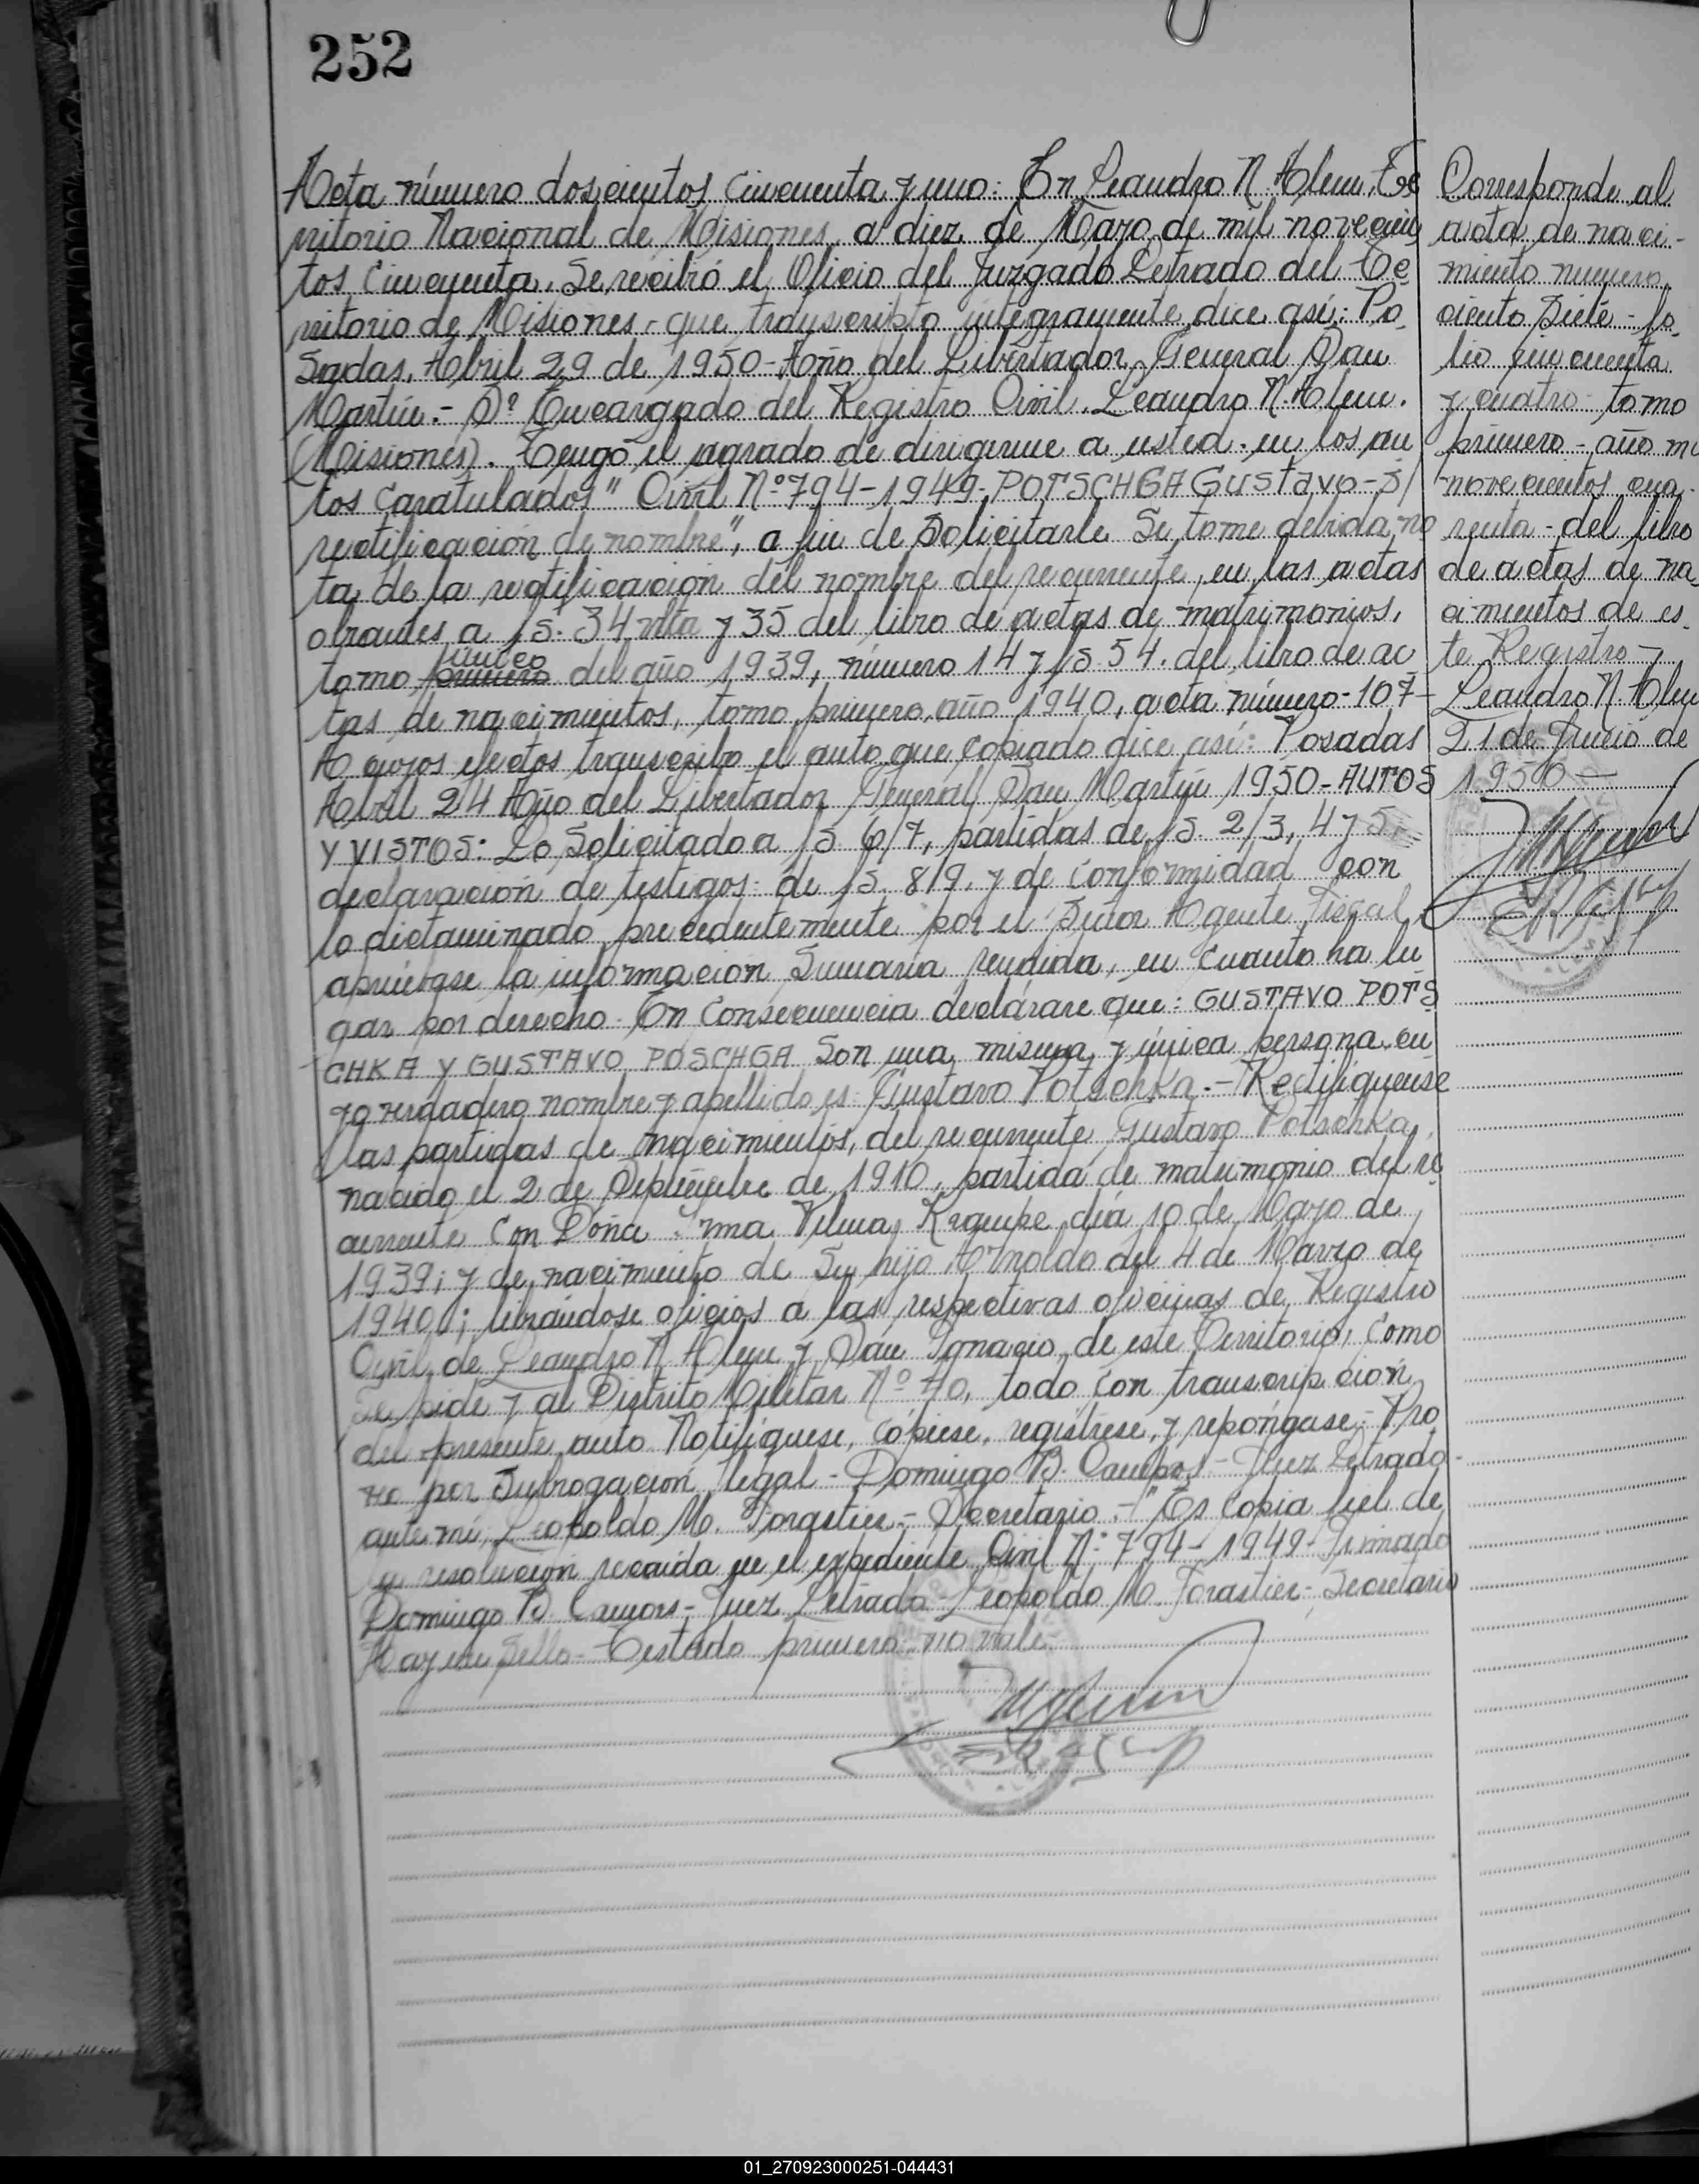 252
Acta número doscientos cincuenta y uno: En Leandro N. Alem, Te
rritorio Nacional de Misiones, a diez de Mayo de mil novecien
tos cincuenta. Se recibió el Oficio del Juzgado Letrado del Te
rritorio de Misiones - que transcripto integramente dice así: Po
sadas, Abril 29 de 1950 - Año del Libertador General San
Martín.- Sº Encargado del Registro Civil. Leandro N. Alem.
(Misiones). Tengo el agrado de dirigirme a usted. en los au
tos caratulados "Civil Nº 794-1949- POTSCHGA Gustavo - S/
rectificación de nombre", a fin de Solicitarle Se tome debida no
ta de la rectificación del nombre del recurrente, en las actas
obrantes a fs. 34 vlta y 35 del libro de actas de matrimonios,
tomo primero único del año 1939, número 14 y fs 54. del libro de ac
tas de nacimientos, tomo primero, año 1940, acta número - 107-
A cuyos efectos transcribo el auto que copiado dice así: Posadas
Abril 24 Año del Libertador General San Martín 1950 - AUTOS
Y VISTOS: Lo Solicitado a fs 6/7, partidas de fs. 2/3, 4 y 5,
declaración de testigos de fs. 8/9. y de conformidad con
lo dictaminado precedentemente por el Señor Agente Fiscal,
apruébase la información Sumaria rendida, en cuanto ha lu
gar por derecho. En Consecuencia declárase que: GUSTAVO POTS
CHKA Y GUSTAVO POSCHGA Son una misma y única persona cu
yo verdadero nombre y apellido es: Gustavo Potschka.- Rectifíquense
las partidas de nacimientos, del recurrente Gustavo Potschka,
nacido el 2 de Septiembre de 1910, partida de matrimonio del re
currente Con Doña Irma Vilma día 10 de Mayo de
1939; y de nacimiento de Su hijo Arnoldo del 4 de Marzo de
1940; librándose oficios a las respectivas oficinas de Registro
Civil de Leandro N. Alem y San Ignacio, de este Territorio, como
se pide y al Distrito Militar Nº 40, todo con transcripción
del presente auto Notifíquese, cópiese, regístrese, y repóngase.- Pro
veo por Subrogación legal - Domingo B. - Juez Letrado -
ante mí, Leopoldo M. Forastier.- Secretario.-" Es copia fiel de
la resolución recaída en el expediente Civil Nº 794-1949- Firmado
Domingo B. - Juez Letrado Leopoldo M. Forastier - Secretario
Hay un Sello - Testado primero - no vale -
Corresponde al
acta de naci-
miento numero
ciento Siete - fo-
lio cincuenta
y cuatro - tomo
primero - año mi
novecientos cua-
renta - del libro
de actas de na-
cimientos de es-
te Registro -
Leandro N. Alem
21 de Junio de
1950 -
01_270923000251-044431